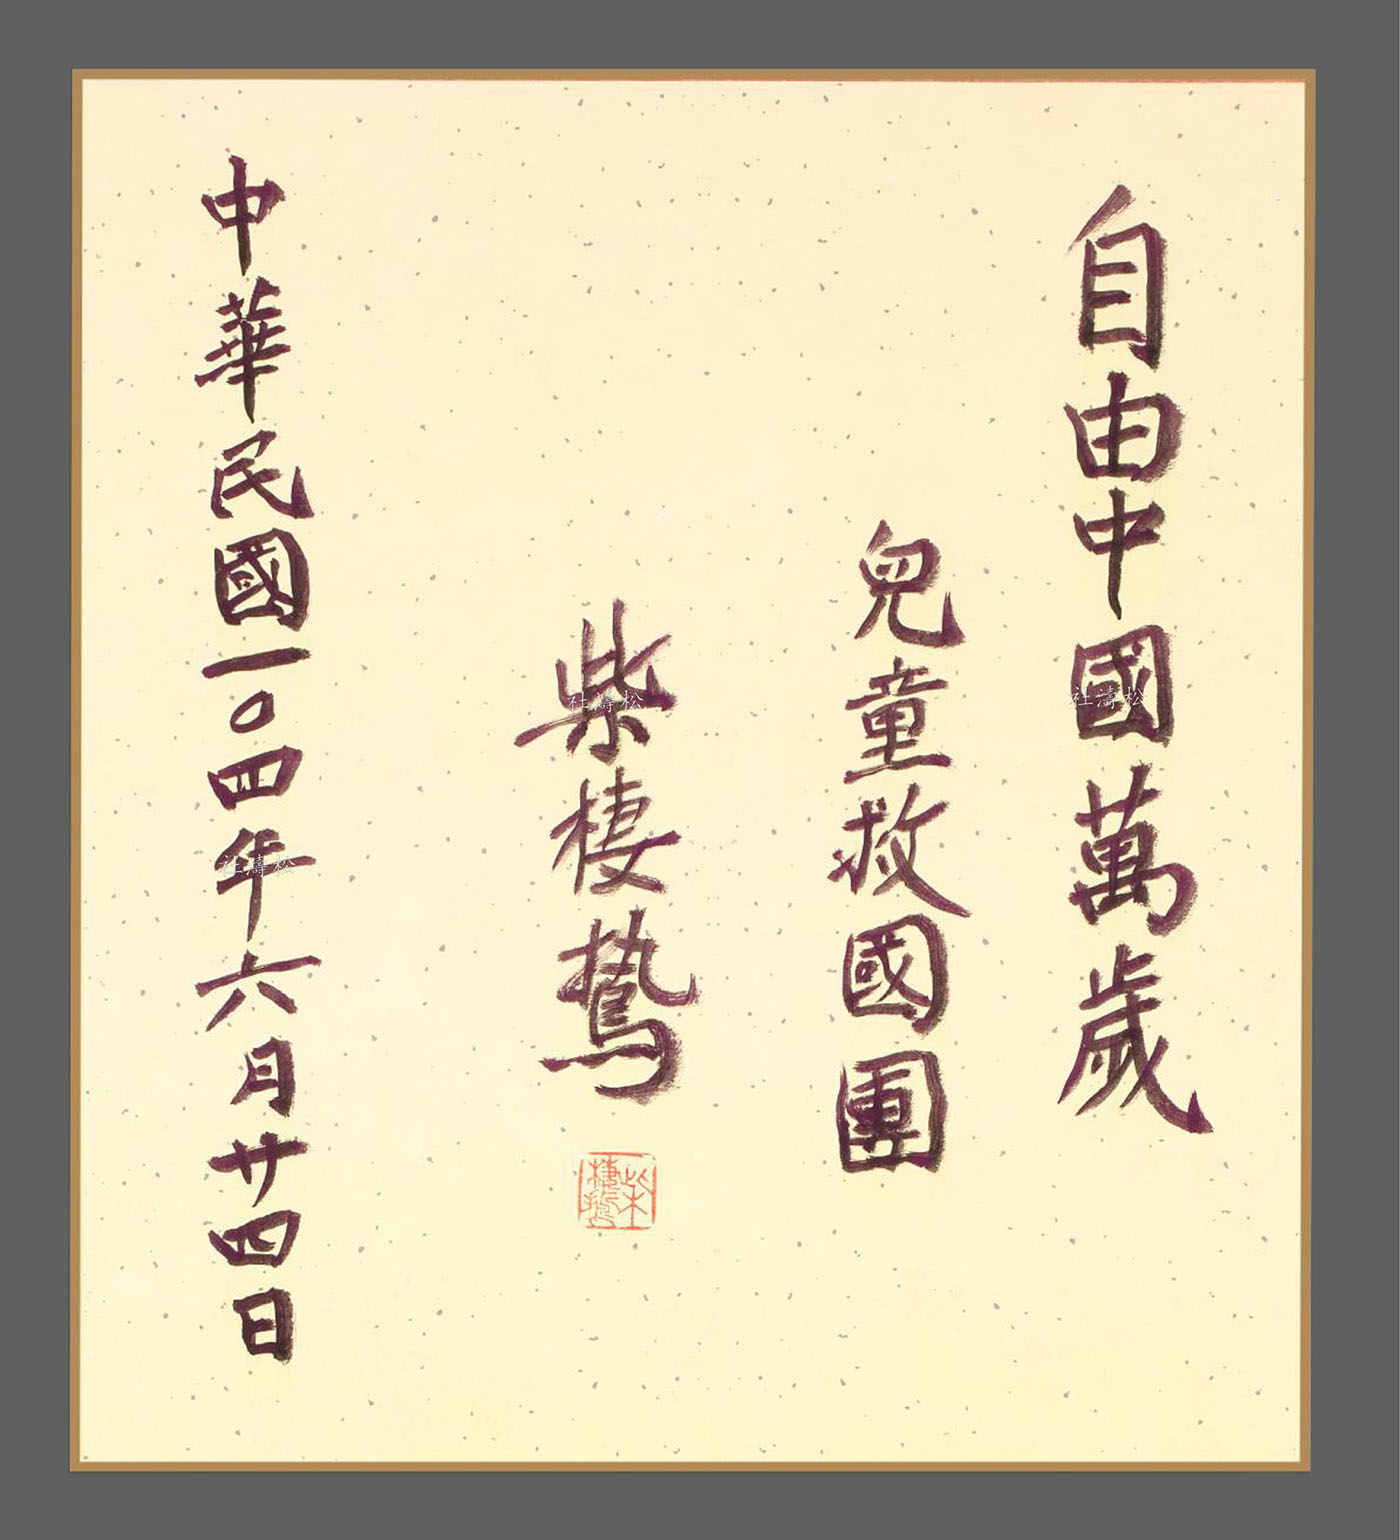 自由中國萬歲
兒童救國團
柴棲鷙
柴棲鷙
中華民國一〇四年六月廿四日
社濤松
社濤松
社濤松